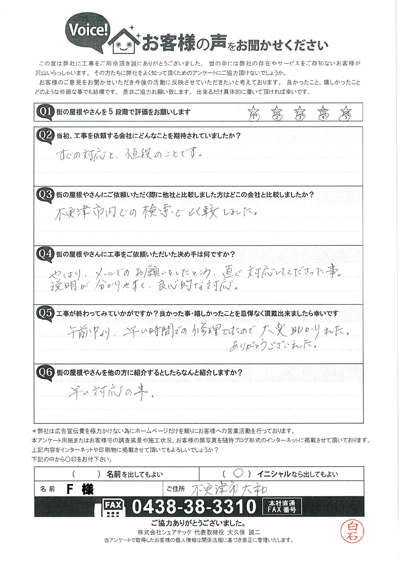 Voice!
お客様の声をお聞かせください
この度は弊社に工事をご用命頂き誠にありがとうございました。世の中には弊社の存在やサービスをご存知ないお客様が
沢山いらっしゃいます。その方たちに弊社をよく知って頂くためのアンケートにご協力頂けないでしょうか。
お客様のご意見をお聞かせいただき今後の活動に反映させていただきたいと考えております。良かったこと、嬉しかったこと
どのような些細な事でも結構です。是非ご協力お願い致します。出来るだけ具体的に書いて頂ければ幸いです。
Q1 街の屋根やさんを5段階で評価をお願いします ☆ ☆ ☆ ☆ ☆
Q2 当初、工事を依頼する会社にどんなことを期待されていましたか?
すぐの対応と、値段のことです。
Q3 街の屋根やさんにご依頼いただく際に他社と比較しました方はどこの会社と比較しましたか?
木更津市内での検索で比較しました。
Q4 街の屋根やさんに工事をご依頼いただいた決め手は何ですか?
やはり、メールでのお願いをしたところ、直ぐ対応してくださった事。
説明が分かりやすく、良心的な対応。
Q5 工事が終わってみていかがですか?良かった事・嬉しかったことを忌憚なく頂戴出来ましたら幸いです
午前中より、早い時間での修理でしたので大変助かりました。
ありがとうございました。
Q6 街の屋根やさんを他の方に紹介するとしたらなんと紹介しますか?
早い対応の事。
*弊社は広告宣伝費を極力かけない為にホームページだけを頼りにお客様への営業活動を行っております。
本アンケート用紙またはお客様宅の調査風景や施工状況、お客様の顔写真を随時ブログ形式のインターネットに掲載させて頂いております。
上記内容をインターネットや印刷物に掲載させて頂いてもよろしいでしょうか?
下記の中から〇印をお付下さい。
( )名前を出してもよい (〇)イニシャルなら出してもよい
名前 F 様 ご住所 木更津市大和
FAX 0438-38-3310 本社直通 FAX番号
ご協力ありがとうございました。
株式会社シェアテック 代表取締役 大久保 誠二
当アンケートで取得したお客様の個人情報は関係法規に基づき厳正に管理いたします。
白石